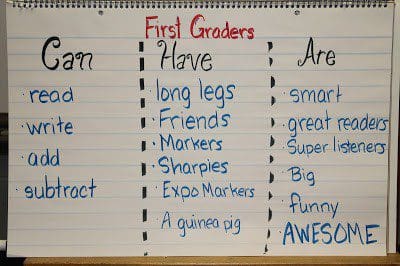 First Graders
Can
· read
· write
· add
· subtract
Have
· long legs
· Friends
· Markers
· Sharpies
· Expo Markers
· A guinea pig
Are
· smart
· great readers
· Super listeners
· Big
· funny
· AWESOME